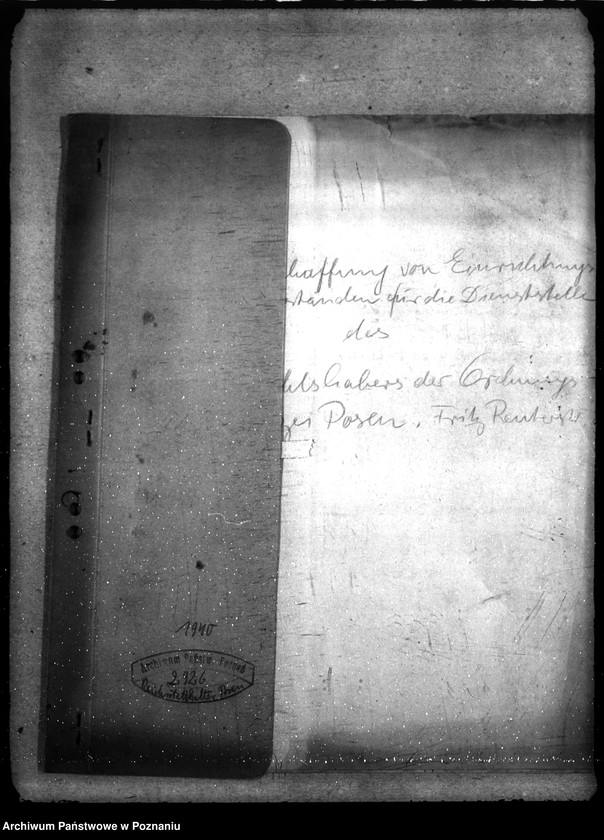 haffung von Einrichtungs
ständen für die Dienststelle
des
hlshabers der Ordnungs-
zei Posen, Fritz Reuterstr
1940
Archiwum Państw. Poznań
2926
Reichsstatthalter Posen
Archiwum Państwowe w Poznaniu